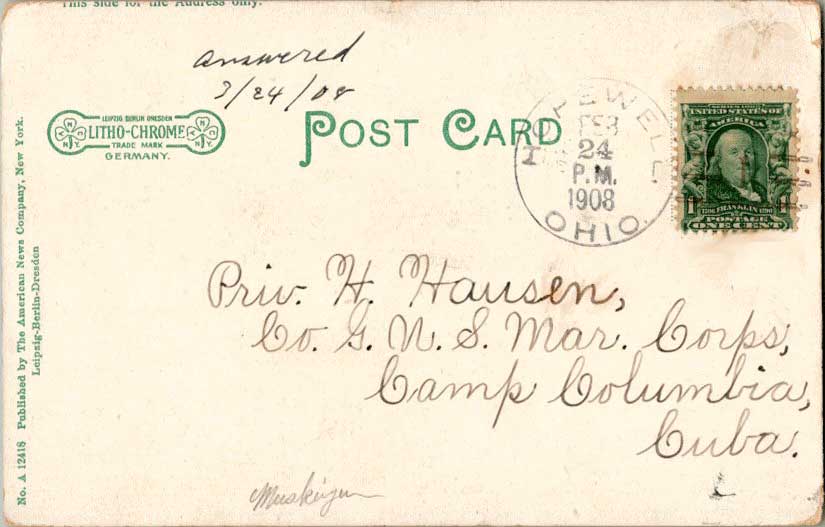 This side for the Address only.
answered
3/24/08
LEIPZIG BERLIN DRESDEN
LITHO-CHROME
TRADE MARK
GERMANY.
POST CARD
HOPEWELL.
FEB
24
P.M.
1908
OHIO.
SERIES 1902
UNITED STATES OF
AMERICA
1 1
1706 FRANKLIN 1790
POSTAGE
ONE CENT
Priv. H. Hausen,
Co. G. U. S. Mar. Corps,
Camp Columbia,
Cuba.
Muskingum
No. A 12418 Published by The American News Company, New York.
Leipzig-Berlin-Dresden